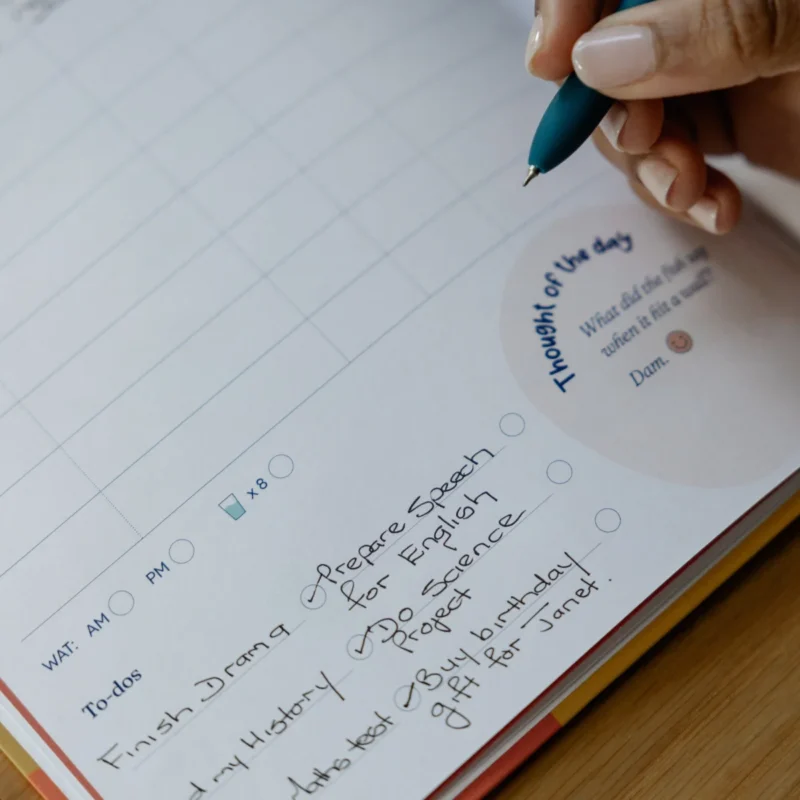 Thought of the day
What did the fish say
when it hit a wall?
Dam.
x 8
WAT: AM PM
To-dos
Finish Drama
my History
Maths test
Prepare Speech
for English
Do Science
Project
Buy birthday
gift for Janet.